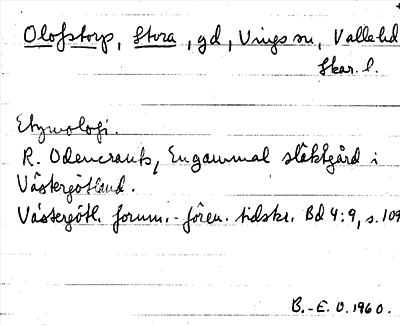 Olofstorp, Stora, gd, Vings sn, Valle hd
Skar. l.
Etymologi.
R. Odencrants, En gammal släktgård i
Västergötland.
Västergötl. fornm.-fören. tidskr. Bd 4:9, s. 109
B.-E. O. 1960.